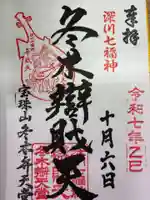 奉拝
深川七福神
令和七年乙巳
十月六日
冬木辯財天
宝珠山冬木弁天堂
冬木辯天堂